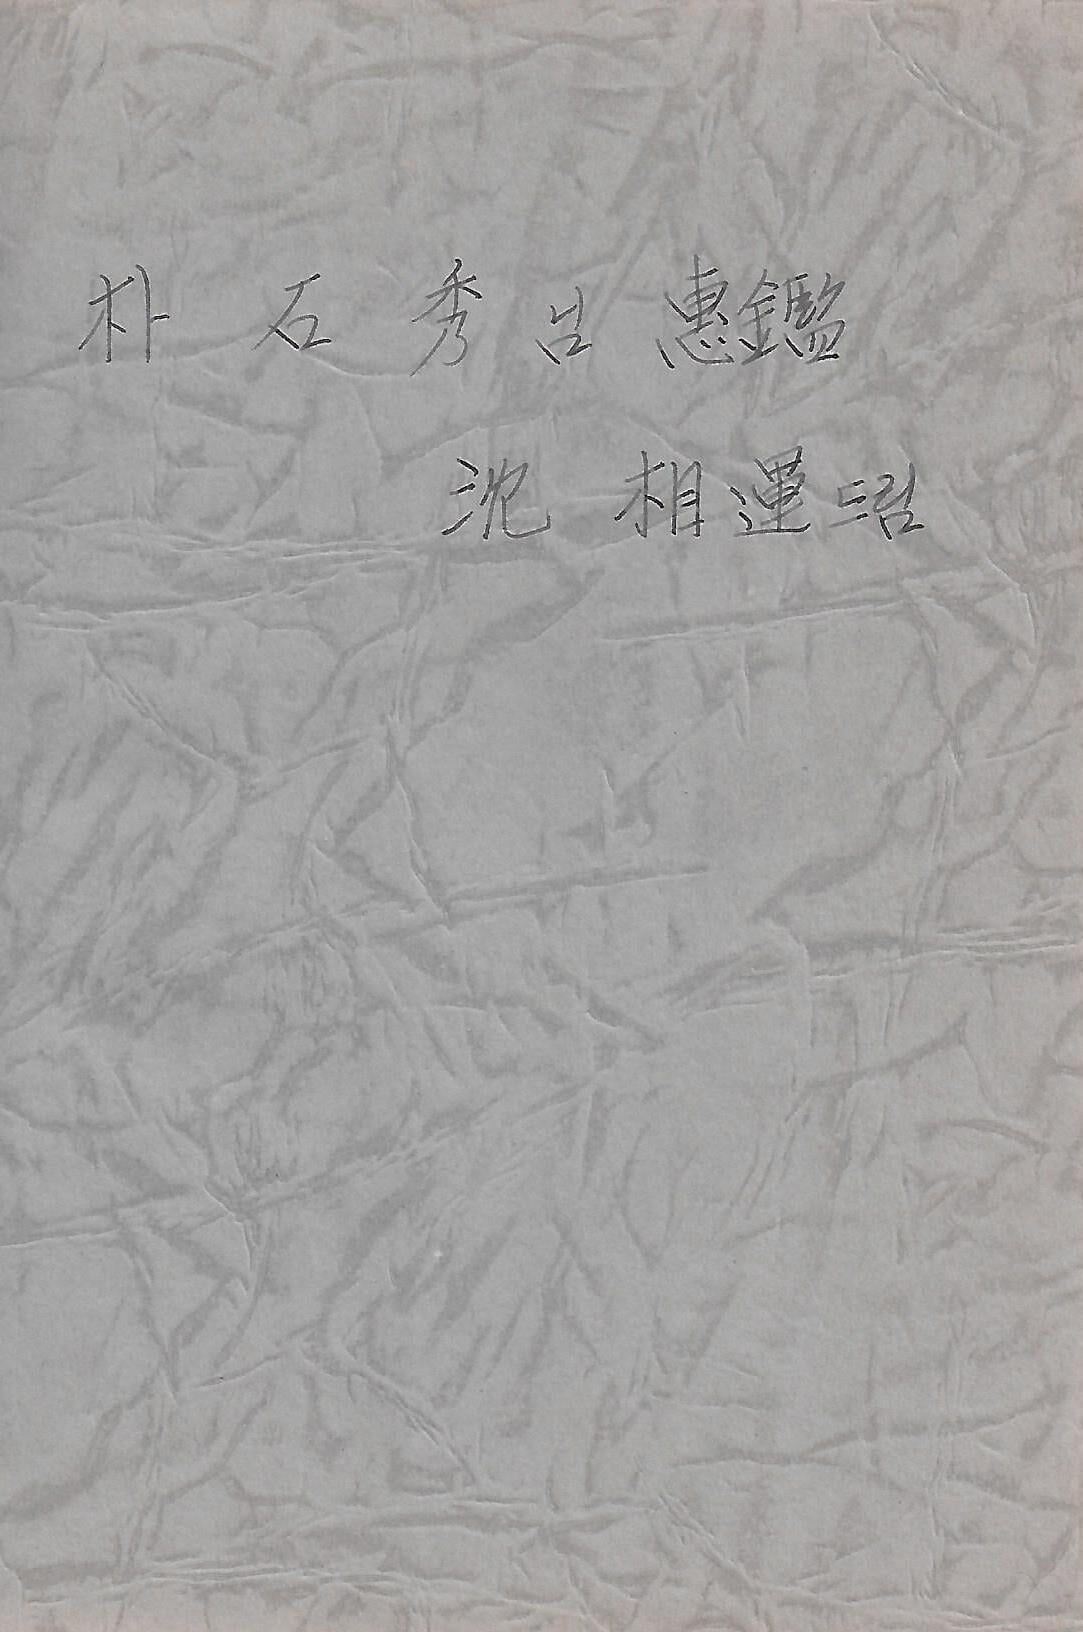 朴 石 秀 님 惠鑑
沈 相運 드림